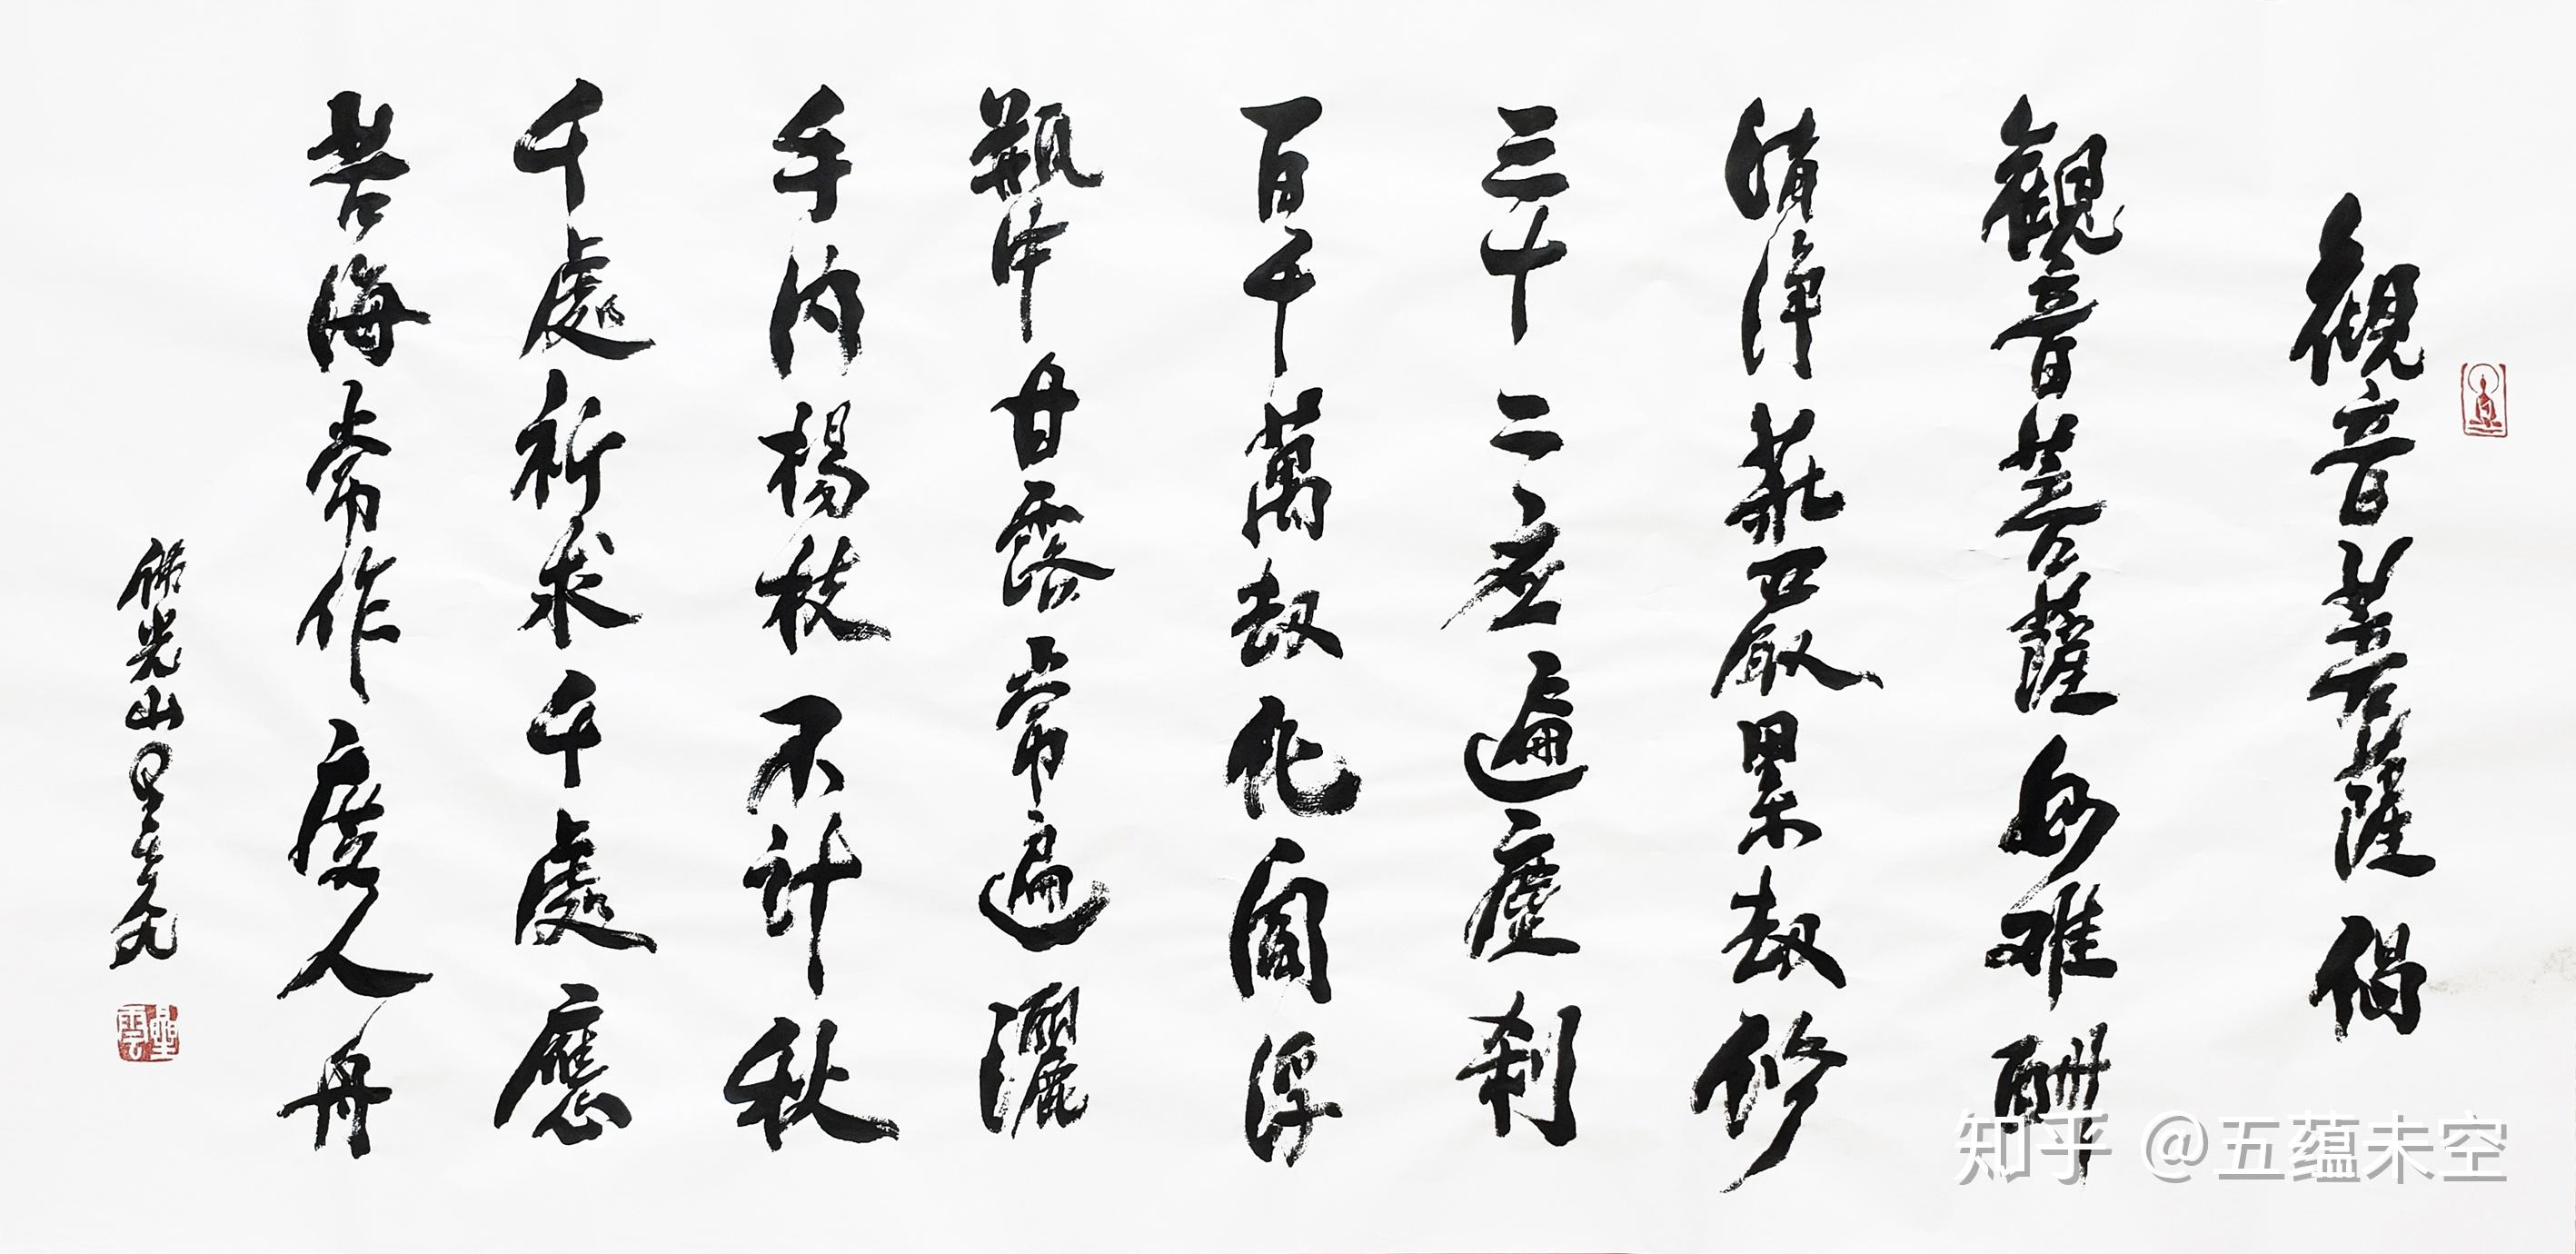 觀音菩薩偈
觀音菩薩妙难酬
清淨莊嚴累劫修
三十二应遍塵刹
百千萬劫化閻浮
瓶中甘露常遍灑
手內楊枝不計秋
千處祈求千處應
苦海常作度人舟
佛光山星雲
星雲
知乎 @五蕴未空